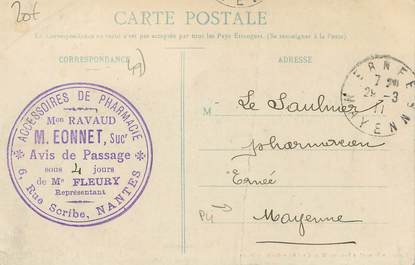 20f
CARTE POSTALE
La Correspondance au verso n'est pas acceptée par tous les Pays Étrangers. (Se renseigner à la Poste)
CORRESPONDANCE
ADRESSE
49
ERNÉE
7
28-3
11
MAYENNE
ACCESSOIRES DE PHARMACIE
Mon RAVAUD
M. EONNET, Sucr
Avis de Passage
sous 4 jours
de Mr FLEURY
Représentant
6, Rue Scribe, NANTES
M Le Saulnier
pharmacien
Ernée
Mayenne